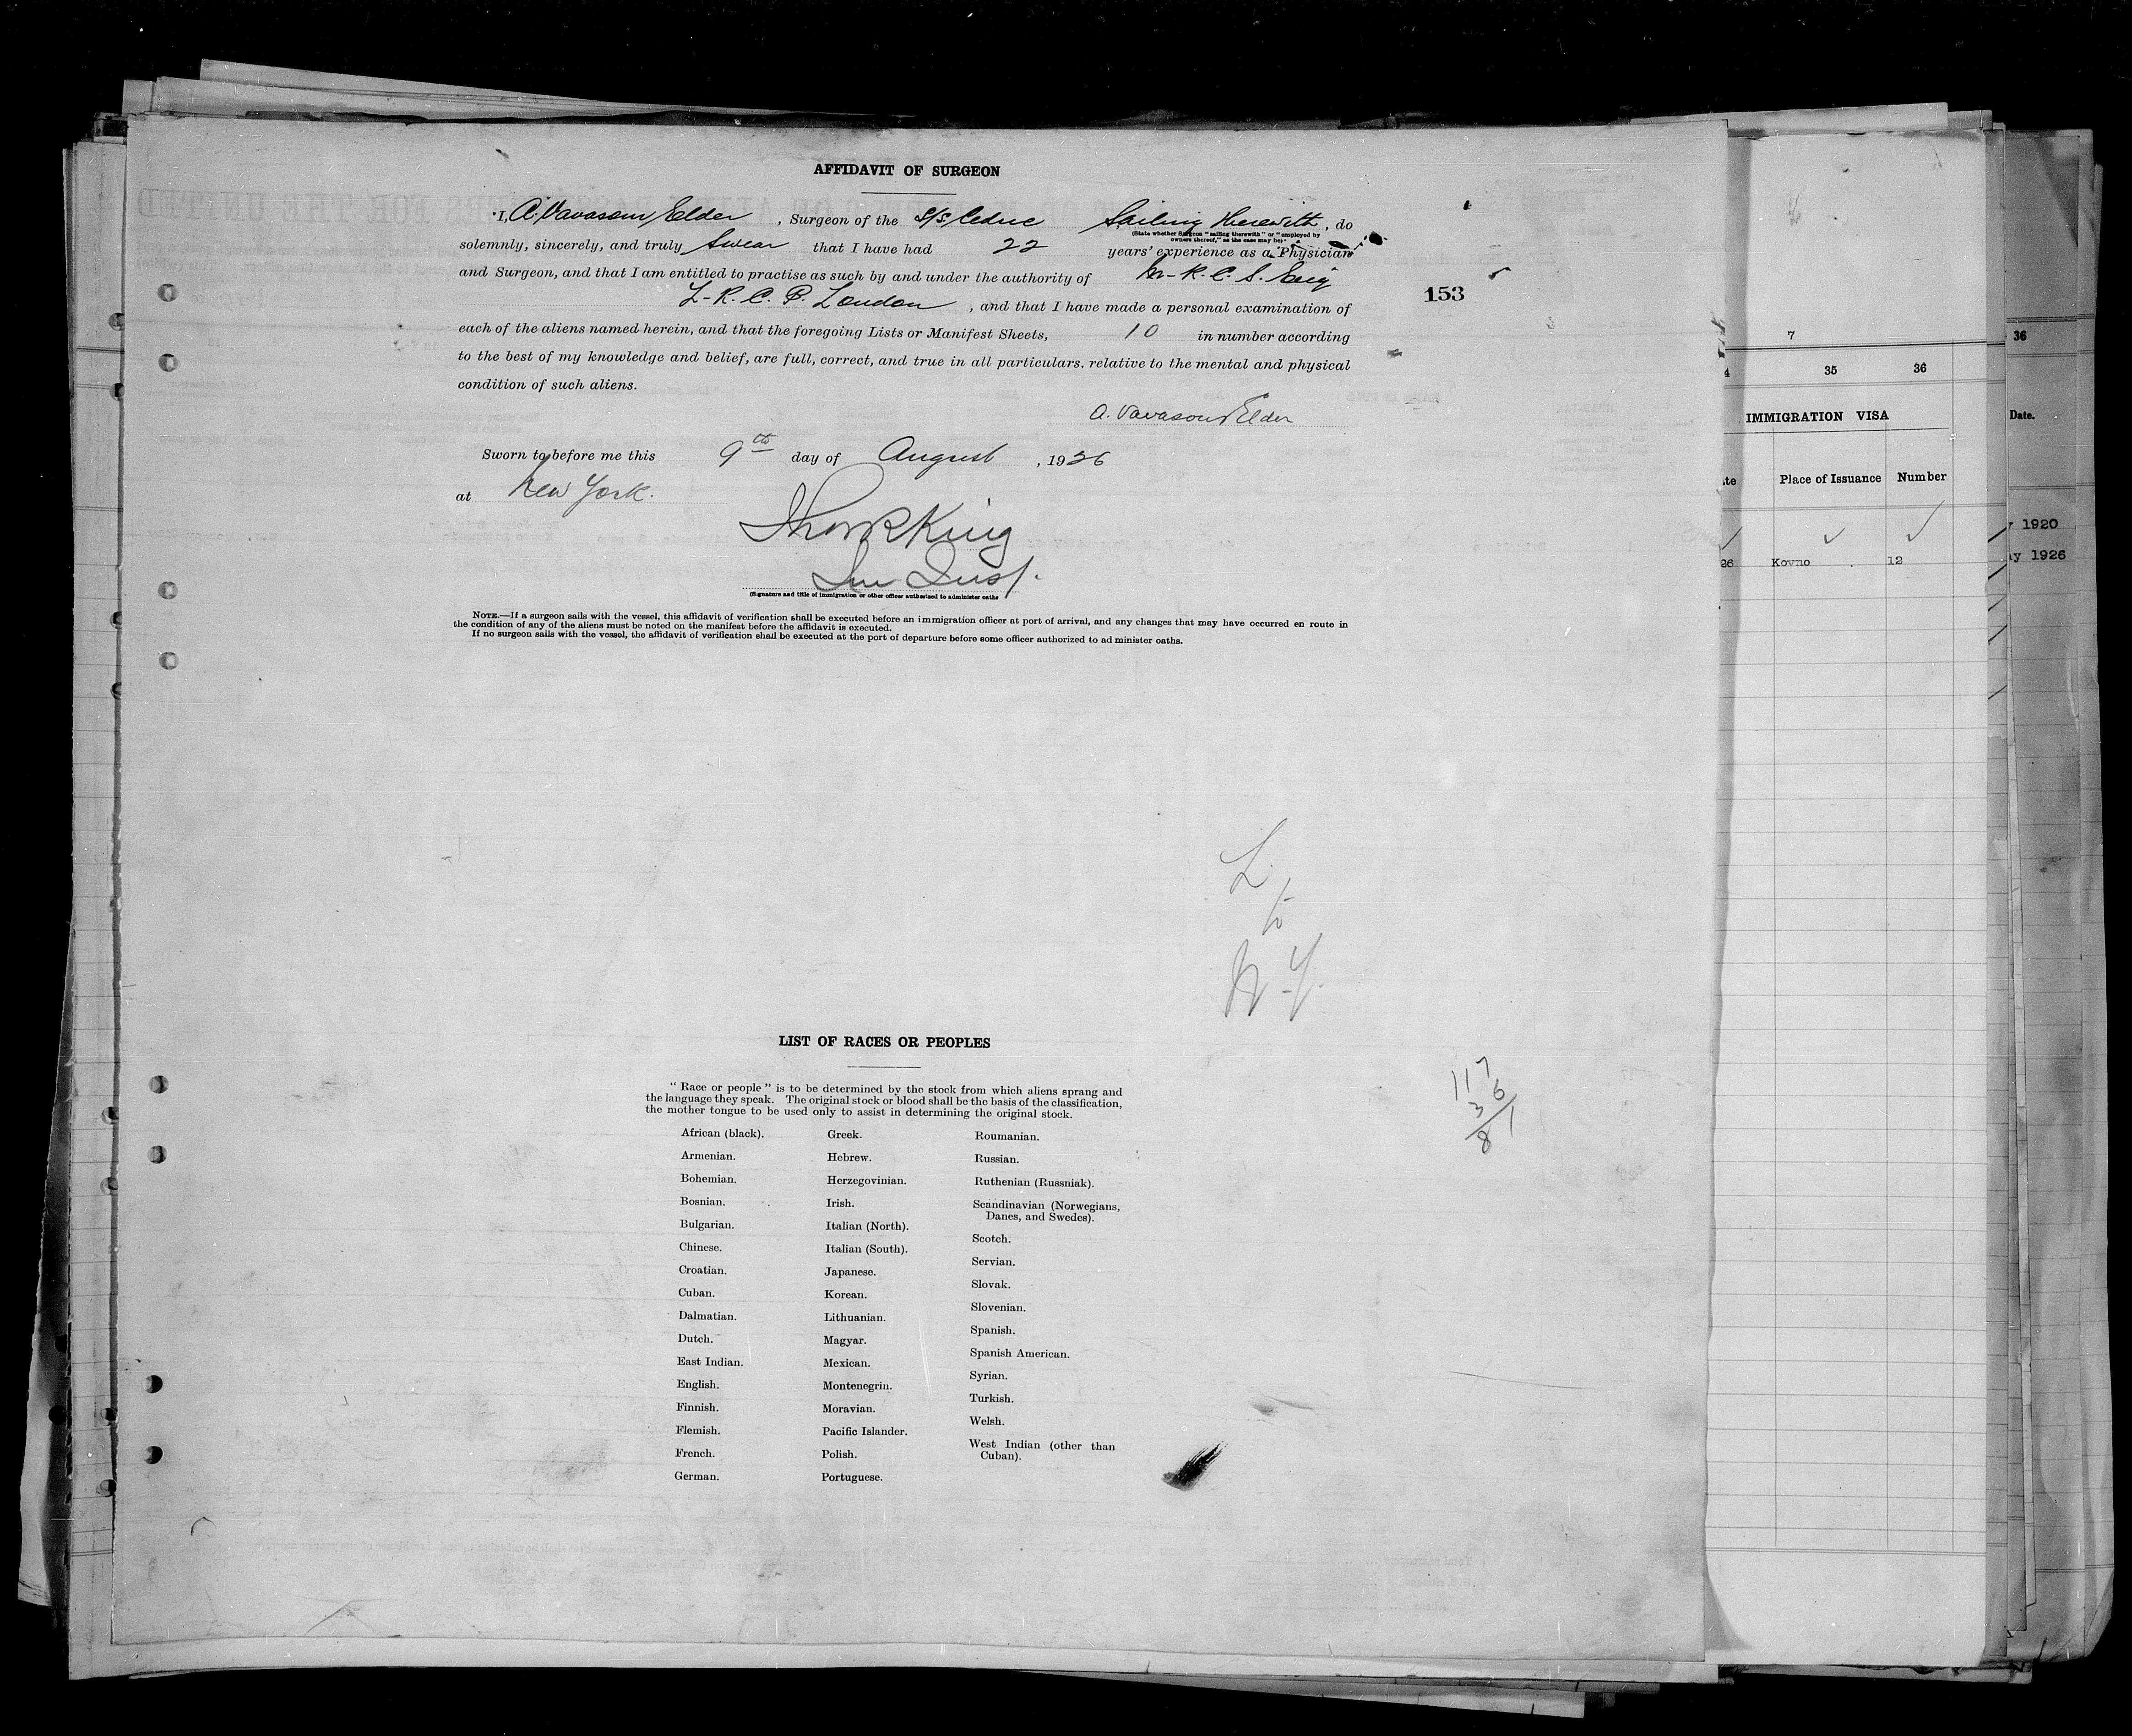 AFFIDAVIT OF SURGEON
I, A. Vavasour Elder, Surgeon of the S/S. Cedric Sailing Therewith, do
(State whether Surgeon "sailing therewith" or "employed by
owners thereof," as the case may be)
solemnly, sincerely, and truly Swear that I have had 22 years' experience as a Physician
and Surgeon, and that I am entitled to practise as such by and under the authority of M-R.C.S. Eng
L-R.C.P. London, and that I have made a personal examination of
153
each of the aliens named herein, and that the foregoing Lists or Manifest Sheets, 10 in number according
to the best of my knowledge and belief, are full, correct, and true in all particulars. relative to the mental and physical
condition of such aliens.
A. Vavasour Elder
Sworn to before me this 9th day of August, 1926
at New York.
King
(Signature and title of immigration or other officer authorized to administer oaths
NOTE.—If a surgeon sails with the vessel, this affidavit of verification shall be executed before an immigration officer at port of arrival, and any changes that may have occurred en route in
the condition of any of the aliens must be noted on the manifest before the affidavit is executed.
If no surgeon sails with the vessel, the affidavit of verification shall be executed at the port of departure before some officer authorized to ad minister oaths.
L
to
N.Y.
LIST OF RACES OR PEOPLES
"Race or people" is to be determined by the stock from which aliens sprang and
the language they speak. The original stock or blood shall be the basis of the classification,
the mother tongue to be used only to assist in determining the original stock.
African (black).
Armenian.
Bohemian.
Bosnian.
Bulgarian.
Chinese.
Croatian.
Cuban.
Dalmatian.
Dutch.
East Indian.
English.
Finnish.
Flemish.
French.
German.
Greek.
Hebrew.
Herzegovinian.
Irish.
Italian (North).
Italian (South).
Japanese.
Korean.
Lithuanian.
Magyar.
Mexican.
Montenegrin.
Moravian.
Pacific Islander.
Polish.
Portuguese.
Roumanian.
Russian.
Ruthenian (Russniak).
Scandinavian (Norwegians,
Danes, and Swedes).
Scotch.
Servian.
Slovak.
Slovenian.
Spanish.
Spanish American.
Syrian.
Turkish.
Welsh.
West Indian (other than
Cuban).
117
36
81
7
4 35 36
IMMIGRATION VISA
Place of Issuance Number
26 Kovno 12
36
Date.
1920
1926